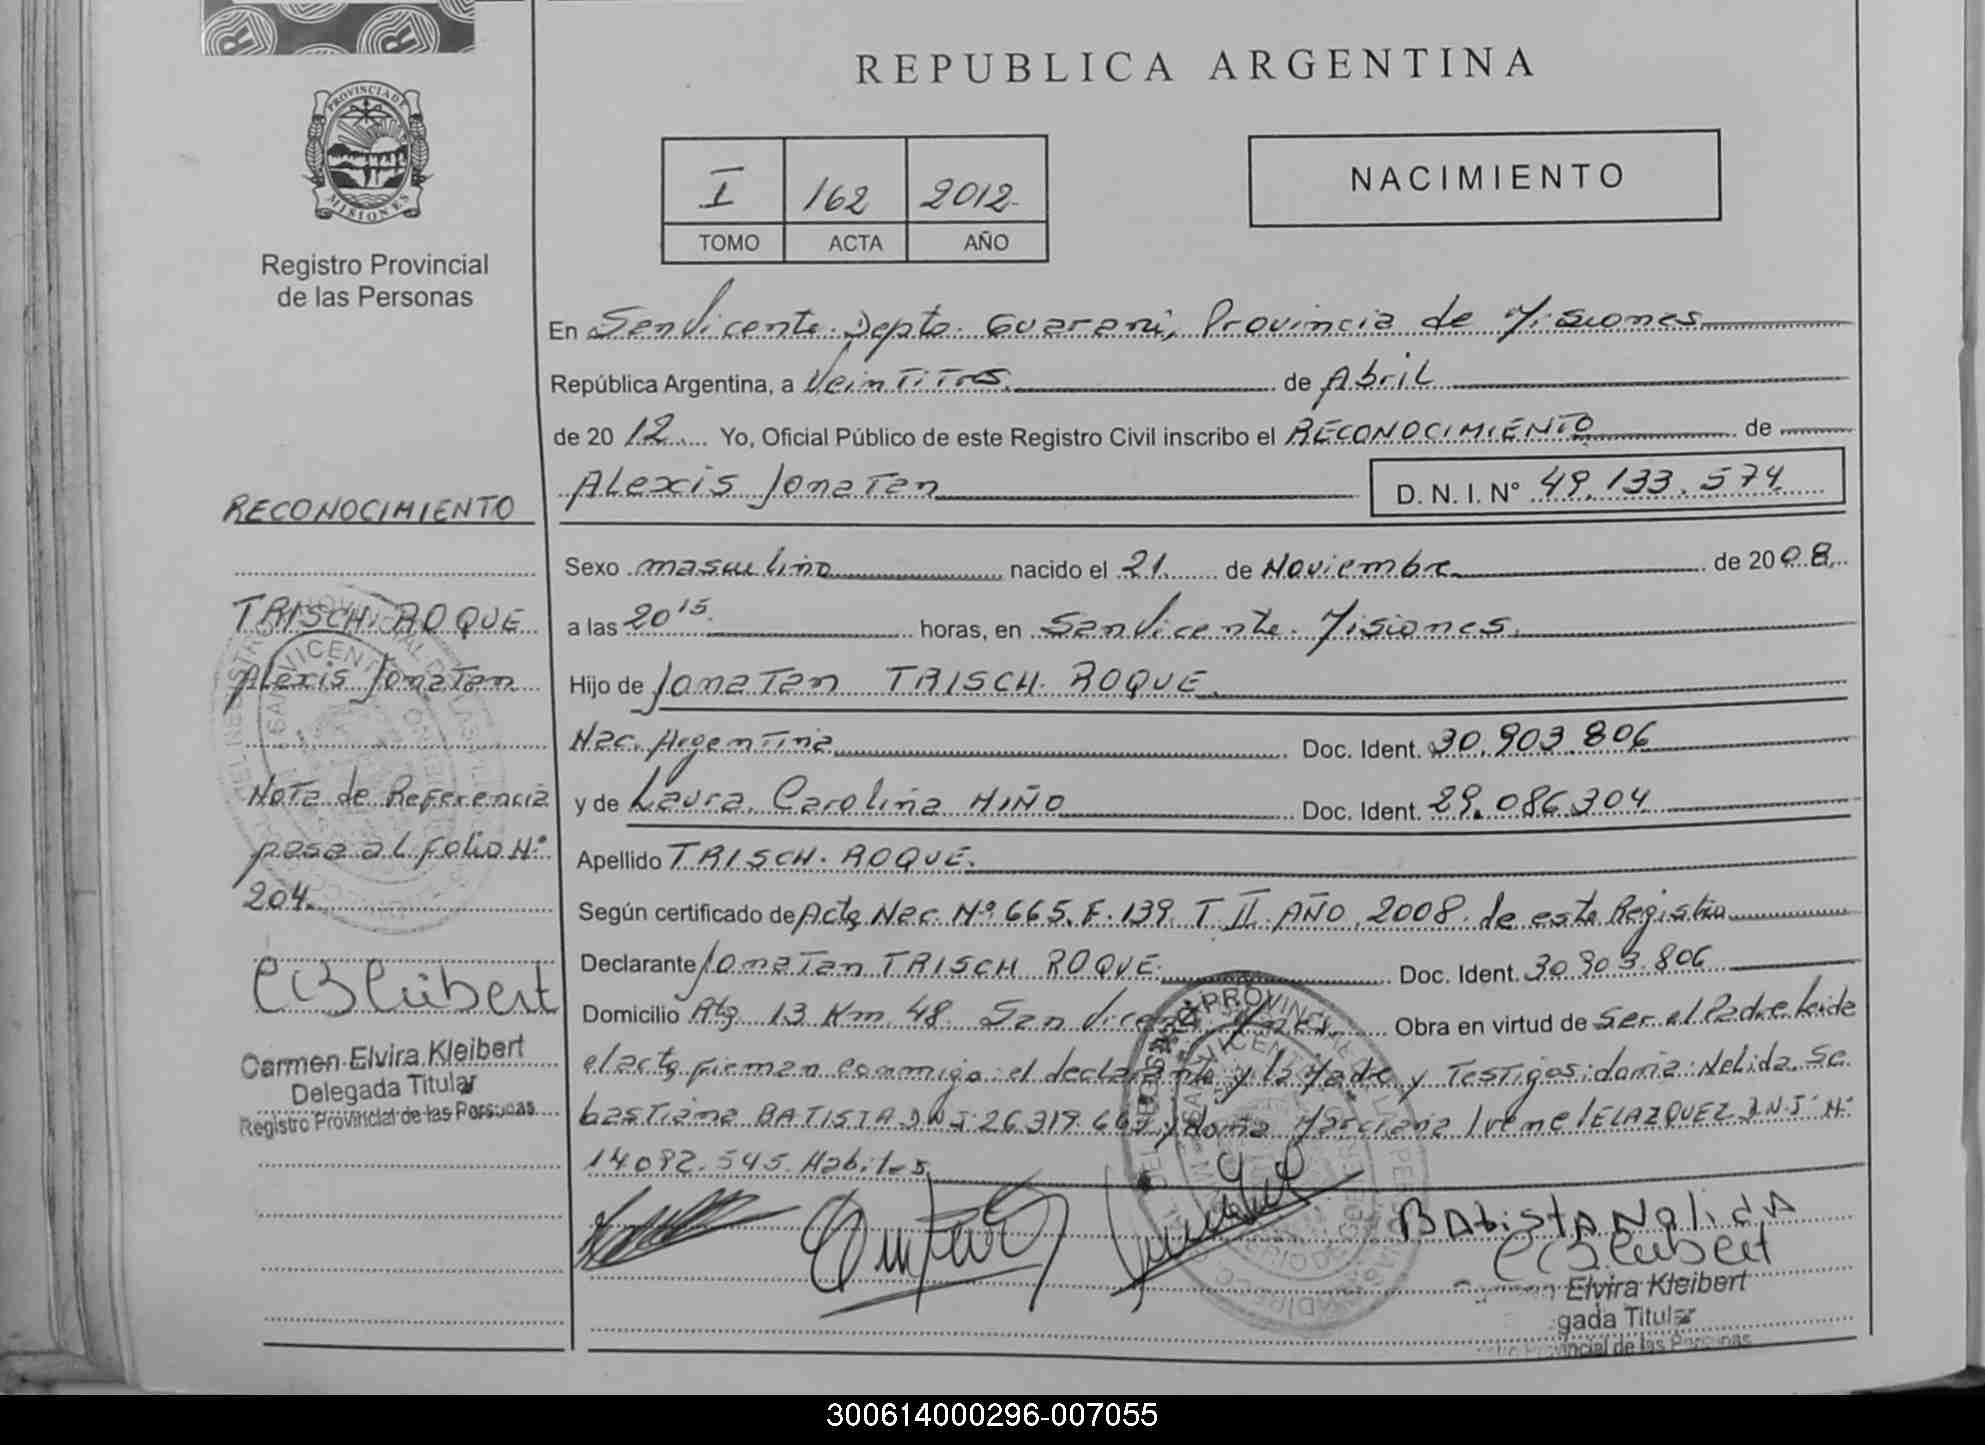 REPUBLICA ARGENTINA
PROVINCIA DE
MISIONES
Registro Provincial
de las Personas
I 162 2012
TOMO ACTA AÑO
NACIMIENTO
En San Vicente. Depto. Guarani, Provincia de Misiones
República Argentina, a Veintitres de Abril
de 2012 Yo, Oficial Público de este Registro Civil inscribo el RECONOCIMIENTO de
Alexis Jonatan D. N. I. Nº 49.133.574
RECONOCIMIENTO
TRISCH. ROQUE
Alexis Jonatan
Nota de Referencia
pasa al folio Nº
204.
CBKleibert
Carmen Elvira Kleibert
Delegada Titular
Registro Provincial de las Personas
Sexo masculino nacido el 21 de Noviembre de 2008
a las 20 15 horas, en San Vicente. Misiones.
Hijo de Jonatan TRISCH. ROQUE.
Nac. Argentina Doc. Ident. 30.903.806
y de Laura Carolina MIÑO Doc. Ident. 29.086.304
Apellido TRISCH. ROQUE.
Según certificado de Acta Nac. Nº 665. F. 139. T II. AÑO 2008. de este Registro
Declarante Jonatan TRISCH ROQUE. Doc. Ident. 30.903.806
Domicilio Rta 13 Km. 48. San Vicente Obra en virtud de Ser el Padre leida
el acta firman conmigo el declarante y la Madre y Testigos: doña: Nelida Se
bastiana BATISTA DNI 26.319.663 y doña Marciana Irene VELAZQUEZ D.N.I Nº
14.092.545. Habiles
BAtistA NalidA
CBKleibert
Elvira Kleibert
gada Titular
vincial de las Personas
300614000296-007055